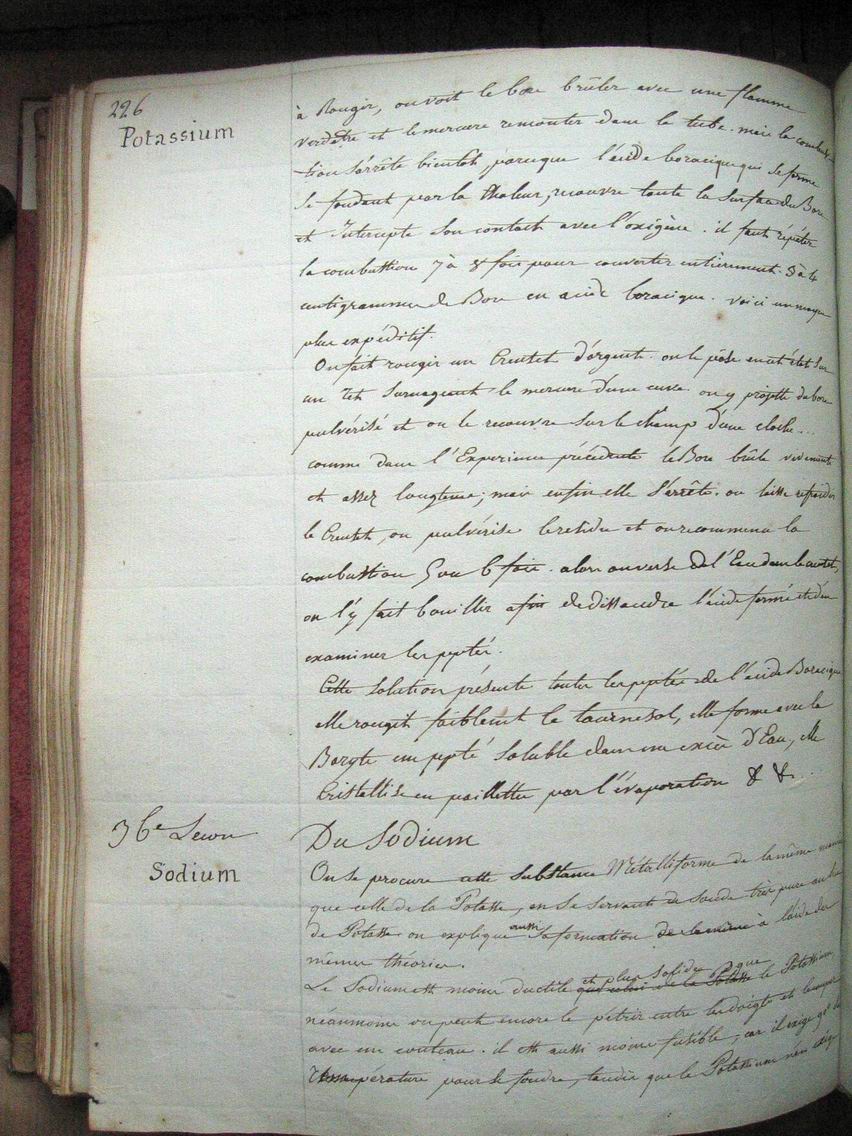 226
Potassium
à Rougir, on voit le bore brûler avec une flamme
verdatre et le mercure remonter dans le tube. mais la combus-
tion s'arrête bientôt, parceque l'acide boracique qui se forme
se fondant par la chaleur, recouvre toute la surface du Bore
et Intercepte son contact avec l'oxigène. il faut répéter
la combustion 7 à 8 fois pour convertir entièrement 3 à 4
centigrammes de Bore en acide boracique. voici un moyen
plus expéditif.
On fait rougir un Creuset d'argent. on le pose en cet état sur
un têt surnageant le mercure d'une cuve on y projette du bore
pulvérisé et on le recouvre sur le champ d'une cloche...
comme dans l'Experience précédente le Bore brûle vivement
et assez longtems; mais enfin elle s'arrête. on laisse refroidir
le Creuset, on pulvérise le résidu et on recommence la
combustion 5 ou 6 fois. alors on verse de l'Eau dans le creuset,
on l'y fait bouillir afin de dissoudre l'acide formé et d'en
examiner les ppetés.
Cette solution présente toutes les ppetés de l'acide Boracique
elle rougit faiblement le tournesol, elle forme avec la
Baryte un ppté soluble dans un excès d'Eau, elle
Cristallise en paillettes par l'évaporation & &...
36e Leçon
Du Sodium
Sodium
On se procure cette substance Métalliforme de la même manière
que celle de la Potasse, en se servant de soude très pure au lieu
de Potasse on explique aussi sa formation de la même à l'aide des
mêmes théories.
Le Sodium est moins ductile et plus solide que que celui de la Potasse le Potassium
néanmoins on peut encore le pétrir entre les doigts et le couper
avec un couteau. il est aussi moins fusible, car il exige 90°
Température pour se fondre, tandis que le Potassium n'en exige